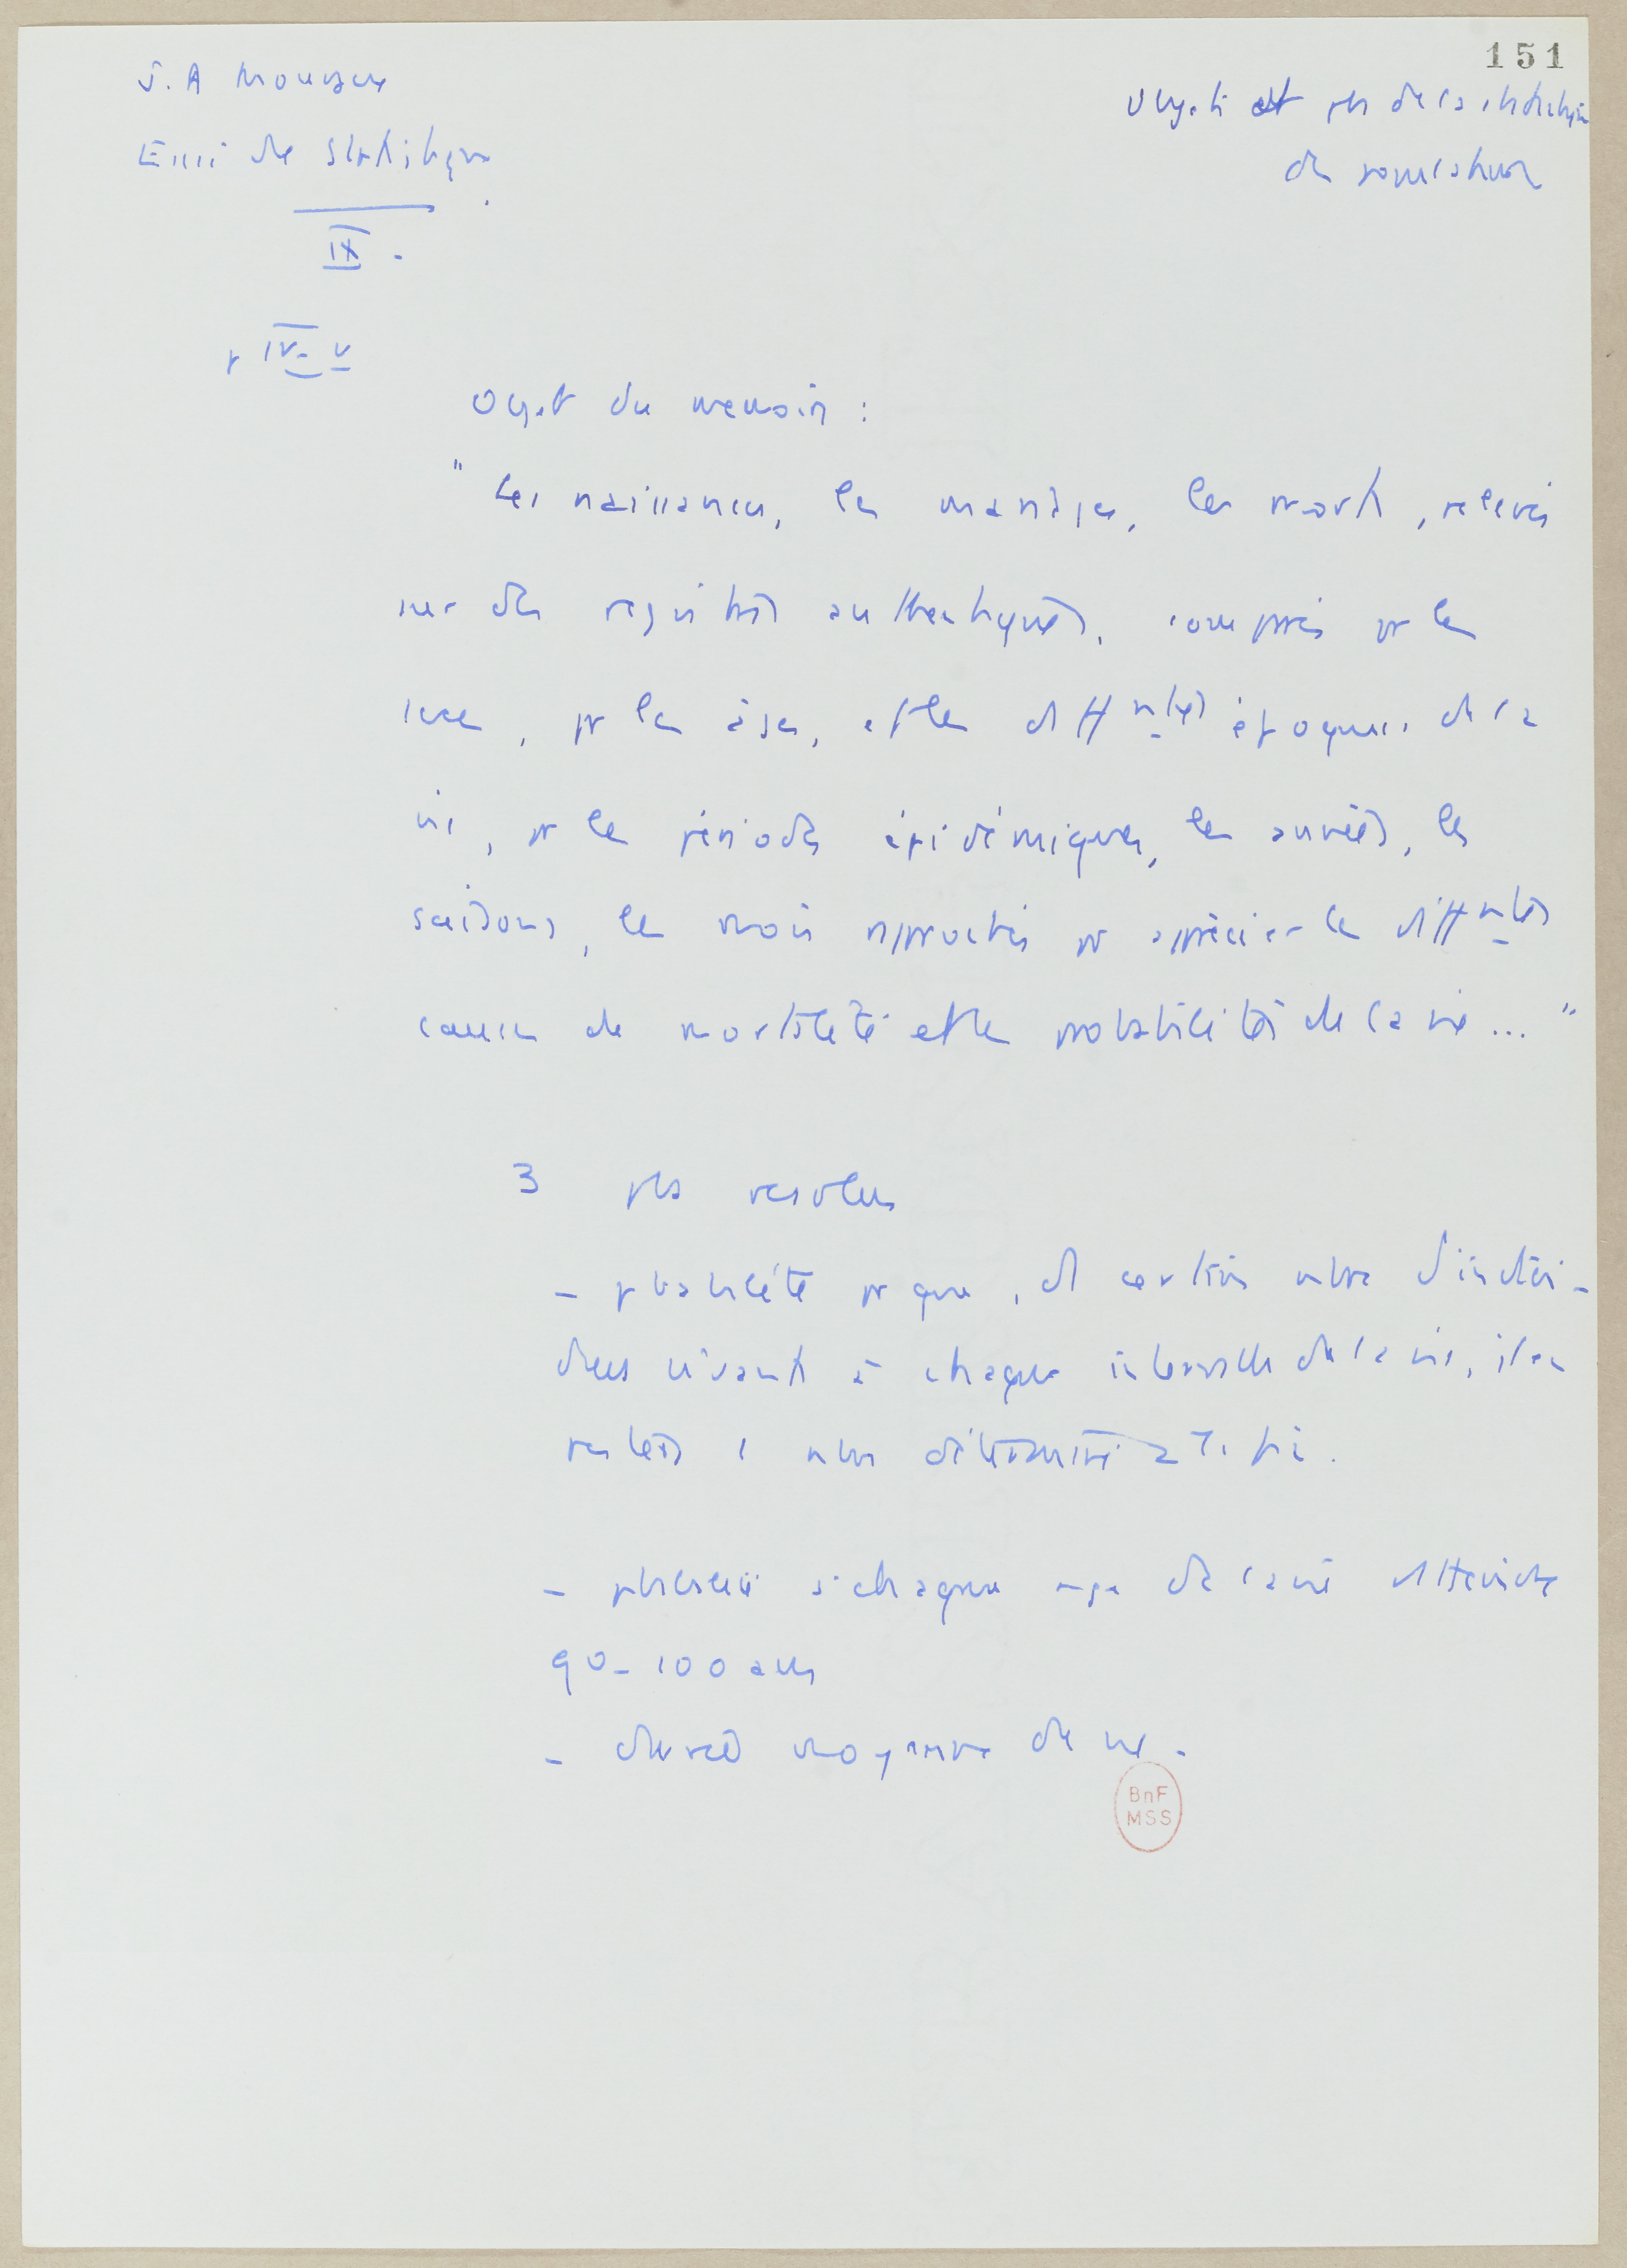 151
J. A Mourgue
Objectifs et pbs de la statistique
Essai de statistique
de population
IX.
p IV-V
Objet du memoire :
" Les naissances, les mariages, les morts, relevés
sur des registres authentiques, comparés pr les
sexes, pr les âges, et les diffntes époques de la
vie, pr les périodes épidémiques, les années, les
saisons, les mois rapprochés pr apprécier les diffntes
causes de mortalité et les probabilités de la vie ... "
3 pbs resolus
- pbabilité pr que, d'1 certain nbre d'indivi-
dus vivants à chaque intervalle de la vie, il en
restera 1 nbre déterminé
- pbabilité à chaque age de la vie d'atteindre
90-100 ans
- durée moyenne de vie.
BnF
MSS